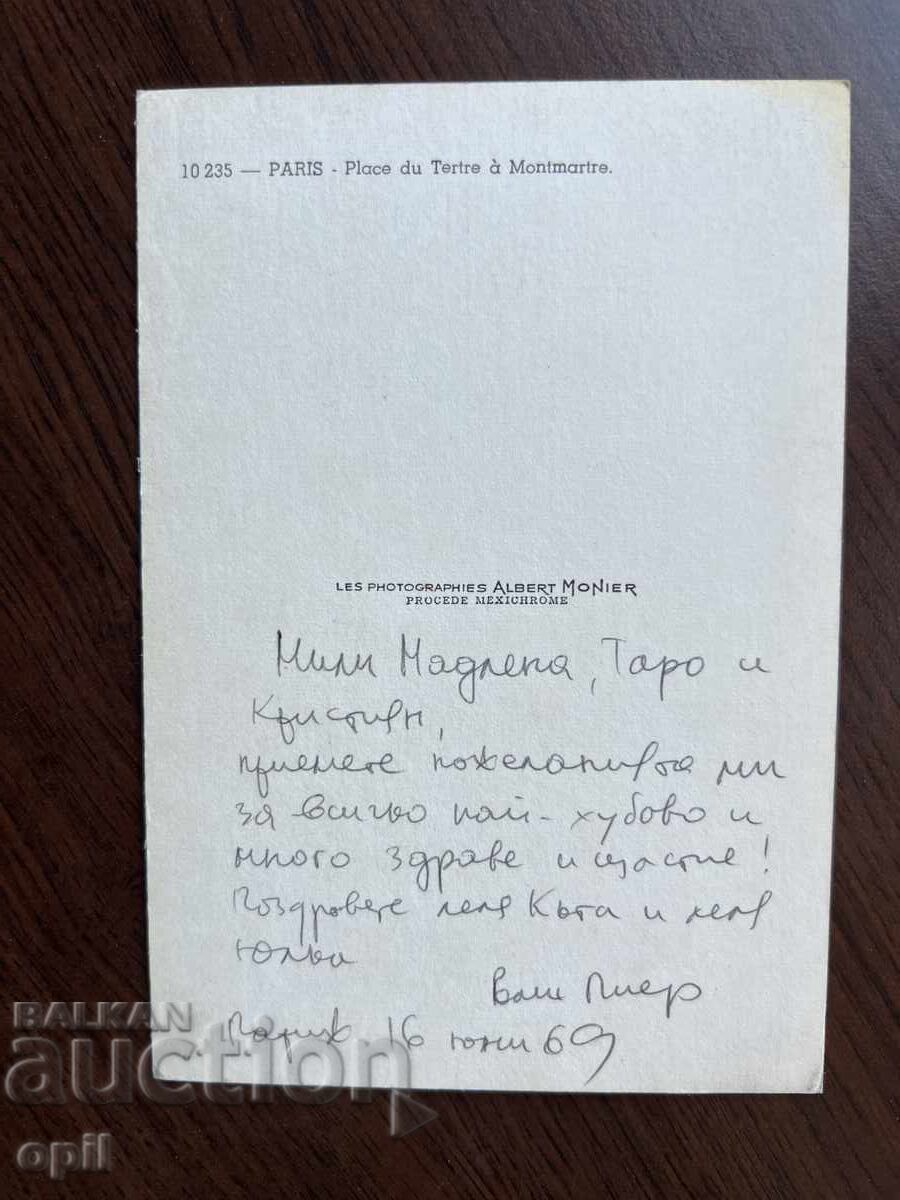 10 235 — PARIS - Place du Tertre à Montmartre.
LES PHOTOGRAPHIES ALBERT MONIER
PROCEDE MEXICHROME
Мили Мадлена, Таро и
Кристиян,
приемете пожеланията ми
за всичко най-хубаво и
много здраве и щастие!
Поздравете леля Къта и леля
Юлка
Ваш Пиер
Париж 16 юни 69
BALKAN
auction
opil